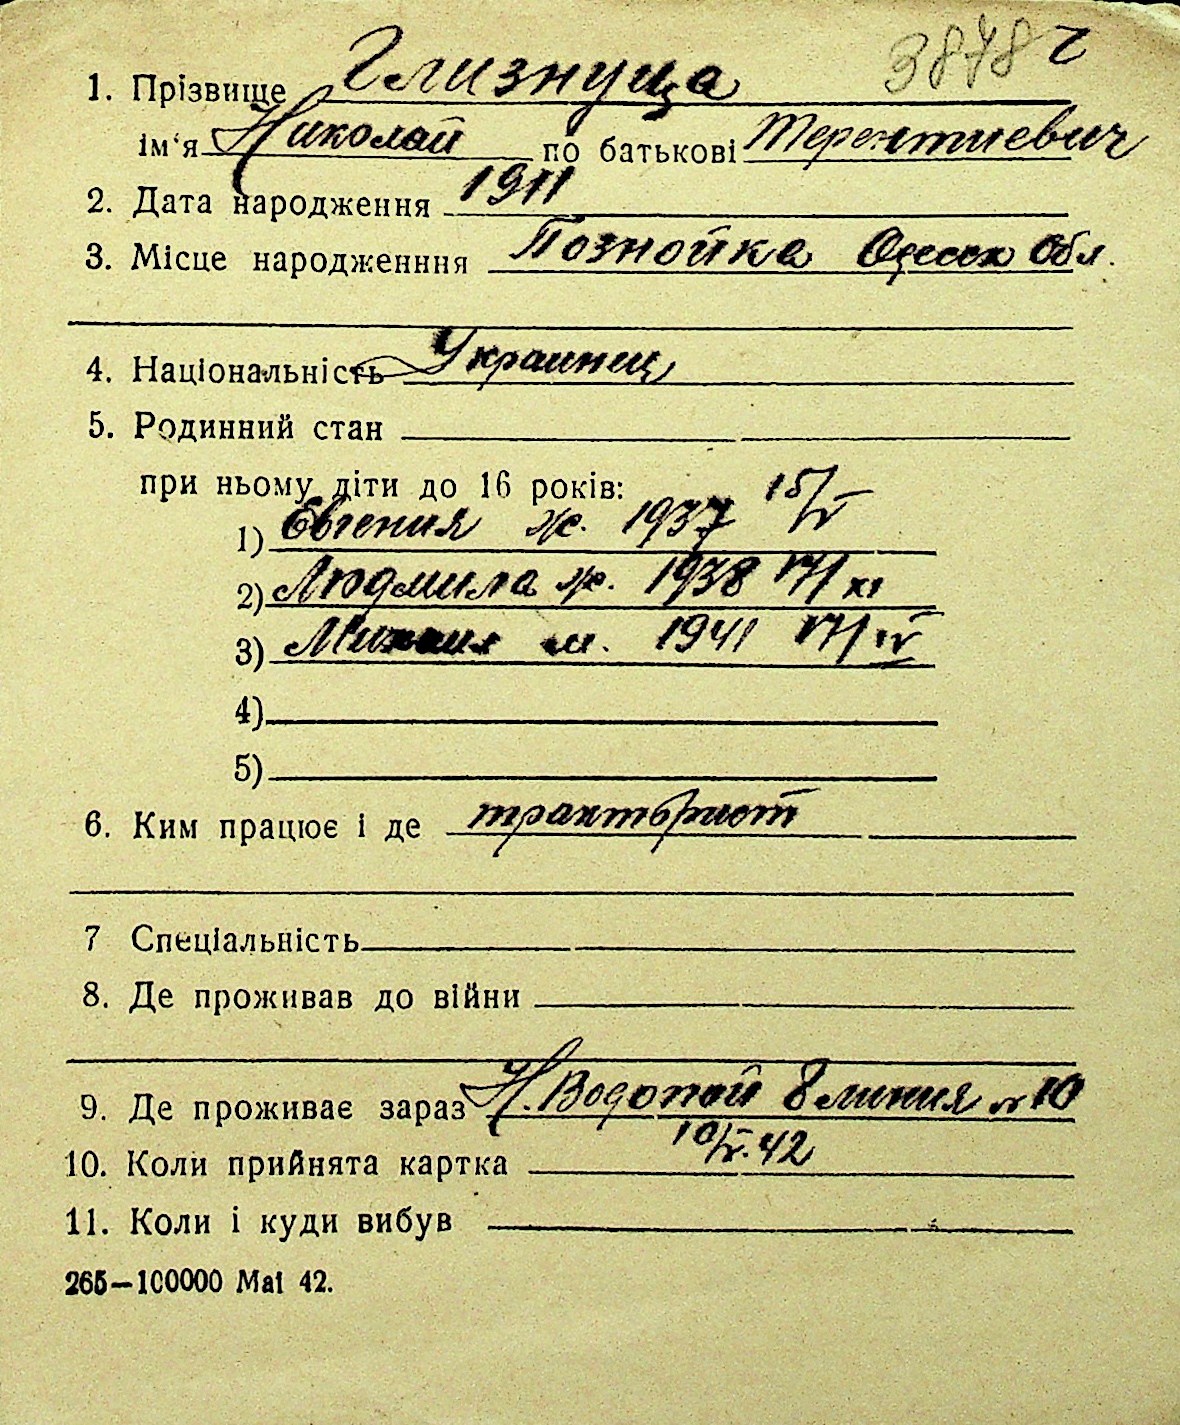 3878 г
1. Прізвище Глизнуца
ім'я Николай по батькові Терентиевич
2. Дата народження 1911
3. Місце народженння Познойка Одесск Обл.
4. Національність Украинец
5. Родинний стан
при ньому діти до 16 років:
1) Евгения ж. 1937 15/V
2) Людмила ж. 1938 17/XI
3) Михаил м. 1941 17/IV
4)
5)
6. Ким працює і де тракторист
7 Спеціальність
8. Де проживав до війни
9. Де проживає зараз Н. Водопой 8 линия № 10
10. Коли прийнята картка 10/V. 42
11. Коли і куди вибув
265—100000 Mai 42.